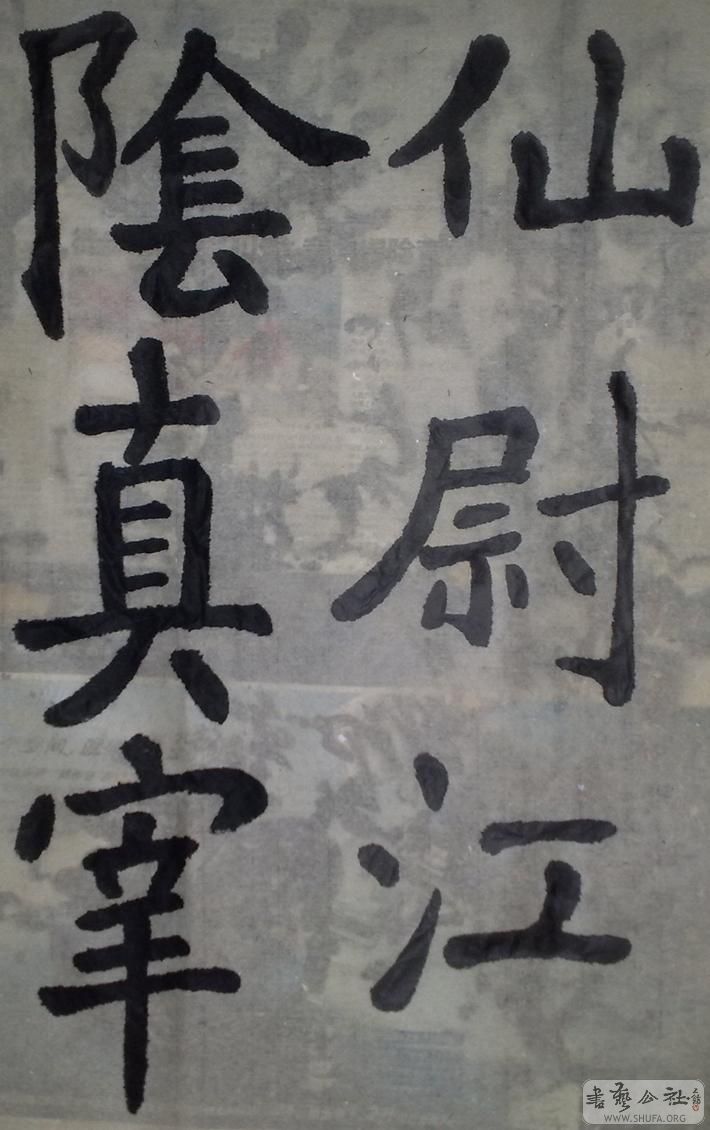 仙尉江
陰真宰
書藝公社
WWW.SHUFA.ORG